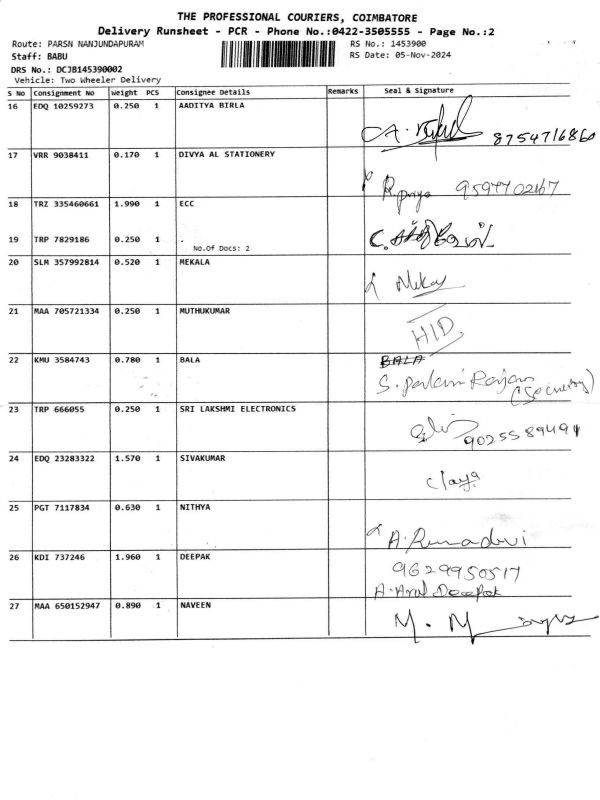 THE PROFESSIONAL COURIERS, COIMBATORE
Delivery Runsheet - PCR - Phone No.:0422-3505555 - Page No.:2
Route: PARSN NANJUNDAPURAM RS No.: 1453900
Staff: BABU RS Date: 05-Nov-2024
DRS No.: DCJB145390002
Vehicle: Two Wheeler Delivery
S No Consignment No Weight PCS Consignee Details Remarks Seal & Signature
16 EDQ 10259273 0.250 1 AADITYA BIRLA
8754716860
17 VRR 9038411 0.170 1 DIVYA AL STATIONERY
R.priya
18 TRZ 335460661 1.990 1 ECC
19 TRP 7829186 0.250 1
No.Of Docs: 2
20 SLM 357992814 0.520 1 MEKALA
21 MAA 705721334 0.250 1 MUTHUKUMAR
HID
22 KMU 3584743 0.780 1 BALA BALA
(Security)
23 TRP 666055 0.250 1 SRI LAKSHMI ELECTRONICS
9025589491
24 EDQ 23283322 1.570 1 SIVAKUMAR
25 PGT 7117834 0.630 1 NITHYA
26 KDI 737246 1.960 1 DEEPAK 9629950517
A.Arul Deepak
27 MAA 650152947 0.890 1 NAVEEN